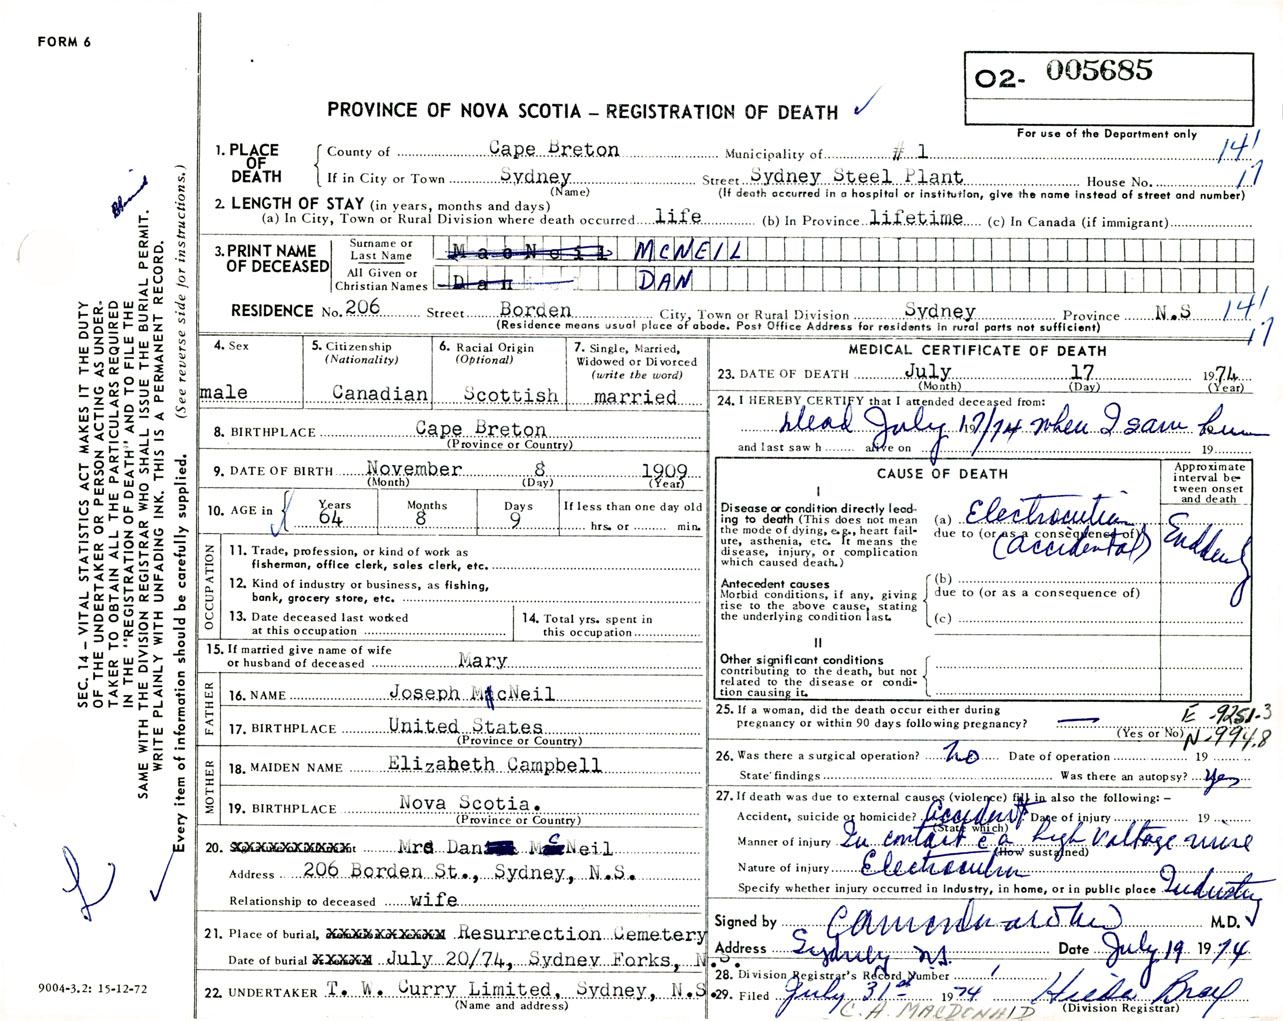 FORM 6
O2- 005685
PROVINCE OF NOVA SCOTIA – REGISTRATION OF DEATH ✓
For use of the Department only
1. PLACE OF DEATH
County of Cape Breton Municipality of # 1 141
If in City or Town Sydney Street Sydney Steel Plant House No. 17
(Name) (If death occurred in a hospital or institution, give the name instead of street and number)
2. LENGTH OF STAY (in years, months and days)
(a) In City, Town or Rural Division where death occurred life (b) In Province lifetime (c) In Canada (if immigrant)
3. PRINT NAME OF DECEASED
Surname or Last Name MacNeil MCNEIL
All Given or Christian Names Dan DAN
RESIDENCE No. 206 Street Borden City, Town or Rural Division Sydney Province N.S 141
(Residence means usual place of abode. Post Office Address for residents in rural parts not sufficient) 17
4. Sex
male
5. Citizenship
(Nationality)
Canadian
6. Racial Origin
(Optional)
Scottish
7. Single, Married,
Widowed or Divorced
(write the word)
married
8. BIRTHPLACE Cape Breton
(Province or Country)
9. DATE OF BIRTH November 8 1909
(Month) (Day) (Year)
10. AGE in
Years Months Days If less than one day old
64 8 9 hrs. or min.
OCCUPATION
11. Trade, profession, or kind of work as
fisherman, office clerk, sales clerk, etc.
12. Kind of industry or business, as fishing,
bank, grocery store, etc.
13. Date deceased last worked
at this occupation
14. Total yrs. spent in
this occupation
15. If married give name of wife
or husband of deceased Mary
FATHER
16. NAME Joseph McNeil
17. BIRTHPLACE United States
(Province or Country)
MOTHER
18. MAIDEN NAME Elizabeth Campbell
19. BIRTHPLACE Nova Scotia.
(Province or Country)
20. Mrs Dan McNeil
Address 206 Borden St., Sydney, N.S.
Relationship to deceased wife
21. Place of burial, xxxxxxxxxx Resurrection Cemetery
Date of burial xxxxx July 20/74, Sydney Forks, N.S.
22. UNDERTAKER T. W. Curry Limited, Sydney, N.S.
(Name and address)
MEDICAL CERTIFICATE OF DEATH
23. DATE OF DEATH July 17 1974
(Month) (Day) (Year)
24. I HEREBY CERTIFY that I attended deceased from:
Dead July 17/74 when I saw him
19
and last saw h alive on 19
CAUSE OF DEATH
Approximate interval between onset and death
I
Disease or condition directly leading to death (This does not mean the mode of dying, e.g., heart failure, asthenia, etc. It means the disease, injury, or complication which caused death.)
(a) Electrocution
due to (or as a consequence of)
(accidental)
Suddenly
Antecedent causes
Morbid conditions, if any, giving rise to the above cause, stating the underlying condition last.
(b)
due to (or as a consequence of)
(c)
II
Other significant conditions
contributing to the death, but not related to the disease or condition causing it.
25. If a woman, did the death occur either during
pregnancy or within 90 days following pregnancy? —
(Yes or No)
E-9251-3
N-994.8
26. Was there a surgical operation? No Date of operation 19
State findings Was there an autopsy? Yes
27. If death was due to external causes (violence) fill in also the following: –
Accident, suicide or homicide? Accident Date of injury 19
(State which)
Manner of injury In contact c̄ a high voltage wire
(How sustained)
Nature of injury Electrocution
Specify whether injury occurred in Industry, in home, or in public place Industry
Signed by M.D.
Address Sydney N.S. Date July 19 1974
28. Division Registrar's Record Number 1
29. Filed July 31st 1974 Hilda Bray
(Division Registrar)
C. A. MACDONALD
SEC. 14 – VITAL STATISTICS ACT MAKES IT THE DUTY
OF THE UNDERTAKER OR PERSON ACTING AS UNDER-
TAKER TO OBTAIN ALL THE PARTICULARS REQUIRED
IN THE "REGISTRATION OF DEATH" AND TO FILE THE
SAME WITH THE DIVISION REGISTRAR WHO SHALL ISSUE THE BURIAL PERMIT.
WRITE PLAINLY WITH UNFADING INK. THIS IS A PERMANENT RECORD.
Every item of information should be carefully supplied. (See reverse side for instructions.)
9004-3.2: 15-12-72